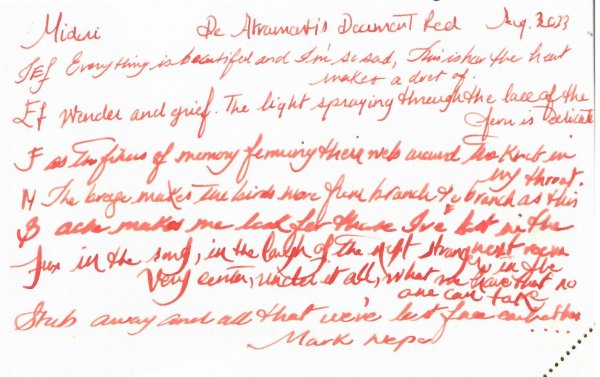 Midori De Atramentis Document Red Aug. 2023
JEF Everything is beautiful and I'm so sad, This is how the heart
makes a duet of
EF Wonder and grief. The light spraying through the lace of the
fern is delicate
F as the fibers of memory forming their web around the knot in
my throat.
M The breeze makes the birds move from branch to branch as this
B ache makes me look for those I've lost in the
in the song, in the laugh of the next stranger
room
in the
very center, under it all, what we have that no
one can take
Stub away and all that we've lost face each other
Mark Nepo